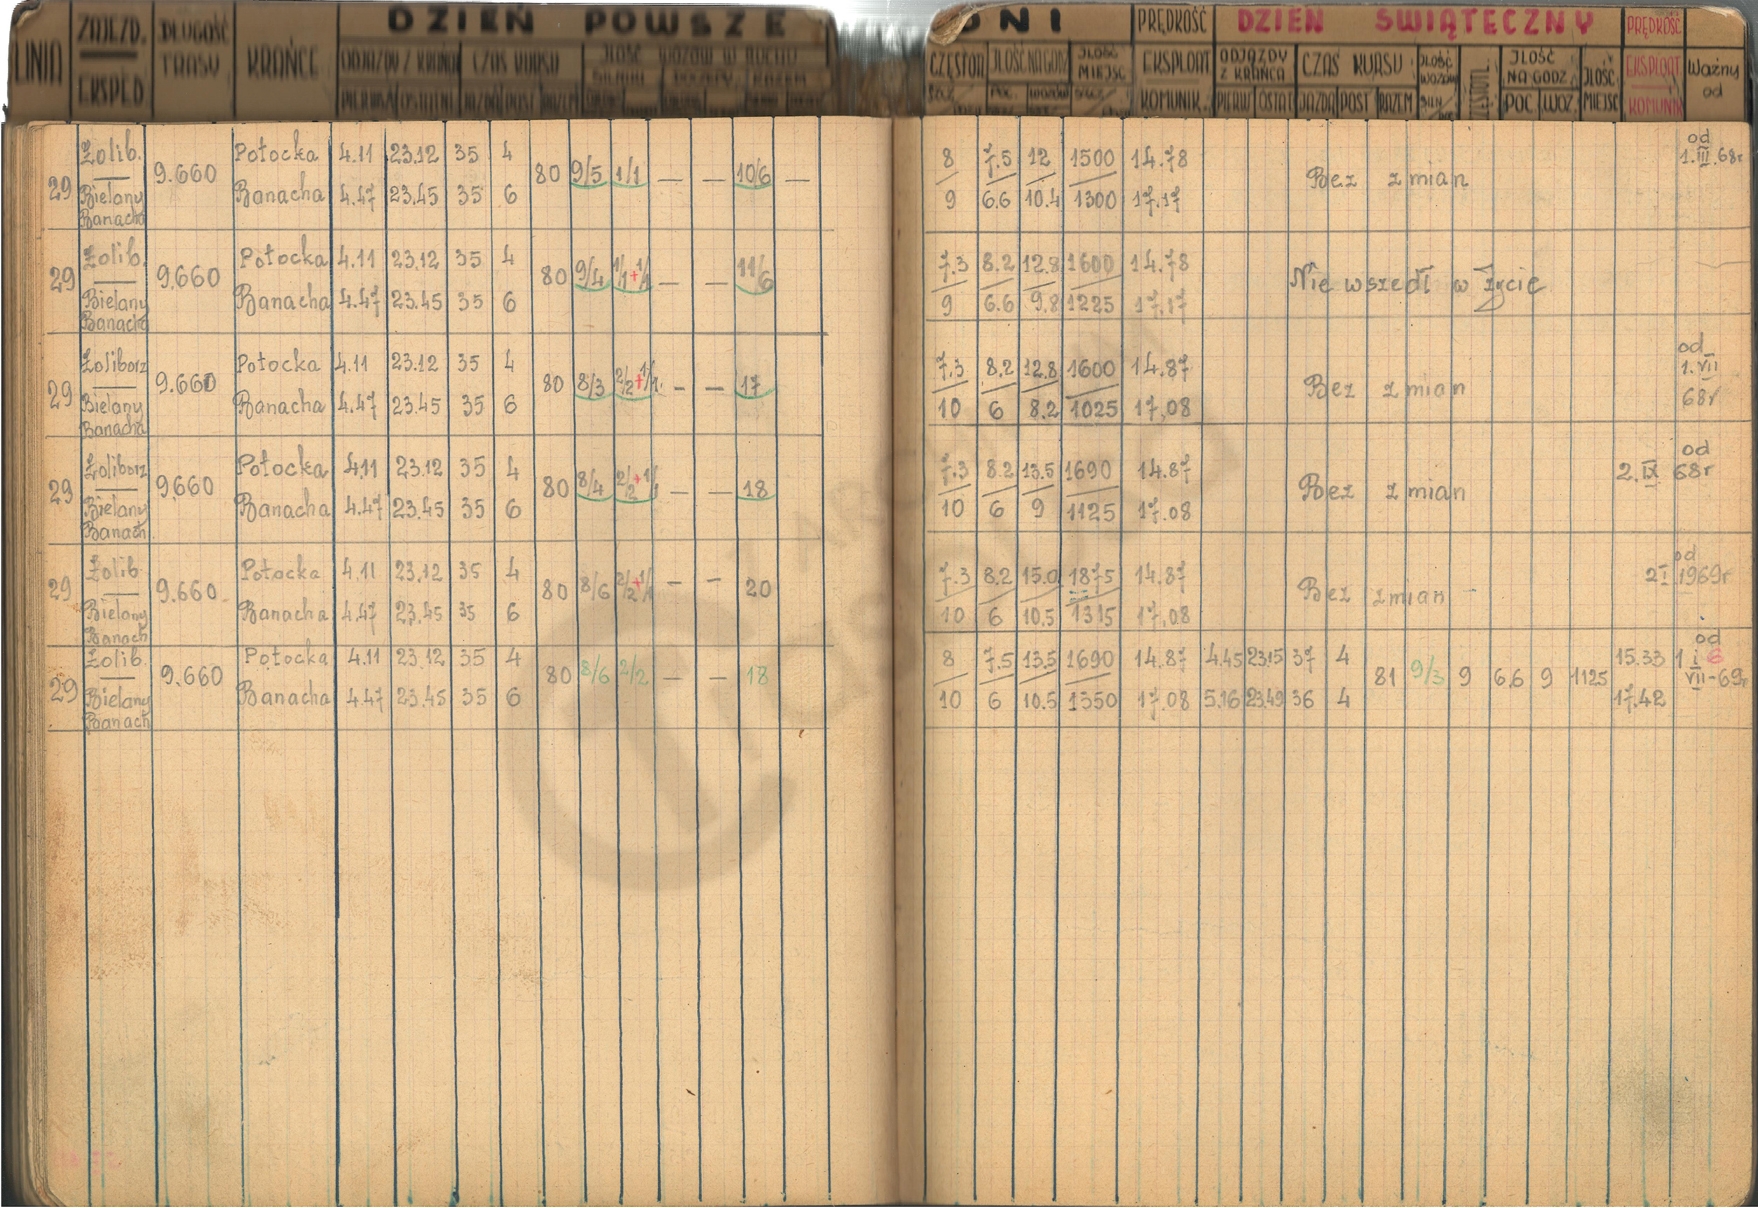 LINIA ZAJEZD. EKSPED DŁUGOŚĆ TRASY KRAŃCE DZIEŃ POWSZE DNI
ODJAZDY Z KRAŃC CZAS KURSU ILOŚĆ WOZÓW W RUCHU
PIERWSZ OSTATNI JAZDA POST RAZEM
CZĘSTOTL ILOŚĆ NA GODZ ILOŚĆ MIEJSC PRĘDKOŚĆ EKSPLOAT KOMUNIK. DZIEŃ ŚWIĄTECZNY PRĘDKOŚĆ EKSPLOAT KOMUNIK
POC. WOZÓW
ODJAZDY Z KRAŃCA CZAS KURSU ILOŚĆ WOZÓW ILOŚĆ NA GODZ ILOŚĆ MIEJSC Ważny od
PIERW OSTAT JAZDA POST RAZEM POC WOZ.
29 Żolib. Bielany Banacha 9.660 80 9/5 1/1 — — 10/6 —
Potocka 4.11 23.12 35 4
Banacha 4.47 23.45 35 6
8 7.5 12 1500 14.78
9 6.6 10.4 1300 17.17
Bez zmian
od 1.III.68r
29 Żolib. Bielany Banacha 9.660 80 9/4 1/1+1/1 — — 11/6
Potocka 4.11 23.12 35 4
Banacha 4.47 23.45 35 6
7.3 8.2 12.8 1600 14.78
9 6.6 9.8 1225 17.17
Nie wszedł w życie
29 Żoliborz Bielany Banacha 9.660 80 8/3 2/2+1/1 — — 17
Potocka 4.11 23.12 35 4
Banacha 4.47 23.45 35 6
7.3 8.2 12.8 1600 14.87
10 6 8.2 1025 17.08
Bez zmian
od 1.VII 68r
29 Żoliborz Bielany Banach 9.660 80 8/4 2/2+1/1 — — 18
Potocka 4.11 23.12 35 4
Banacha 4.47 23.45 35 6
7.3 8.2 13.5 1690 14.87
10 6 9 1125 17.08
Bez zmian
od 2.IX 68r
29 Żolib Bielany Banach 9.660 80 8/6 2/2+1/1 — — 20
Potocka 4.11 23.12 35 4
Banacha 4.47 23.45 35 6
7.3 8.2 15.0 1875 14.87
10 6 10.5 1315 17.08
Bez zmian
od 2 I 1969r
29 Żolib. Bielany Banach 9.660 80 8/6 2/2 — — 18
Potocka 4.11 23.12 35 4
Banacha 4.47 23.45 35 6
8 7.5 13.5 1690 14.87 4.45 23.15 37 4
10 6 10.5 1350 17.08 5.16 23.49 36 4
81 9/3 9 6.6 9 1125
15.33
17.42
od 1 i 6 VII-69r